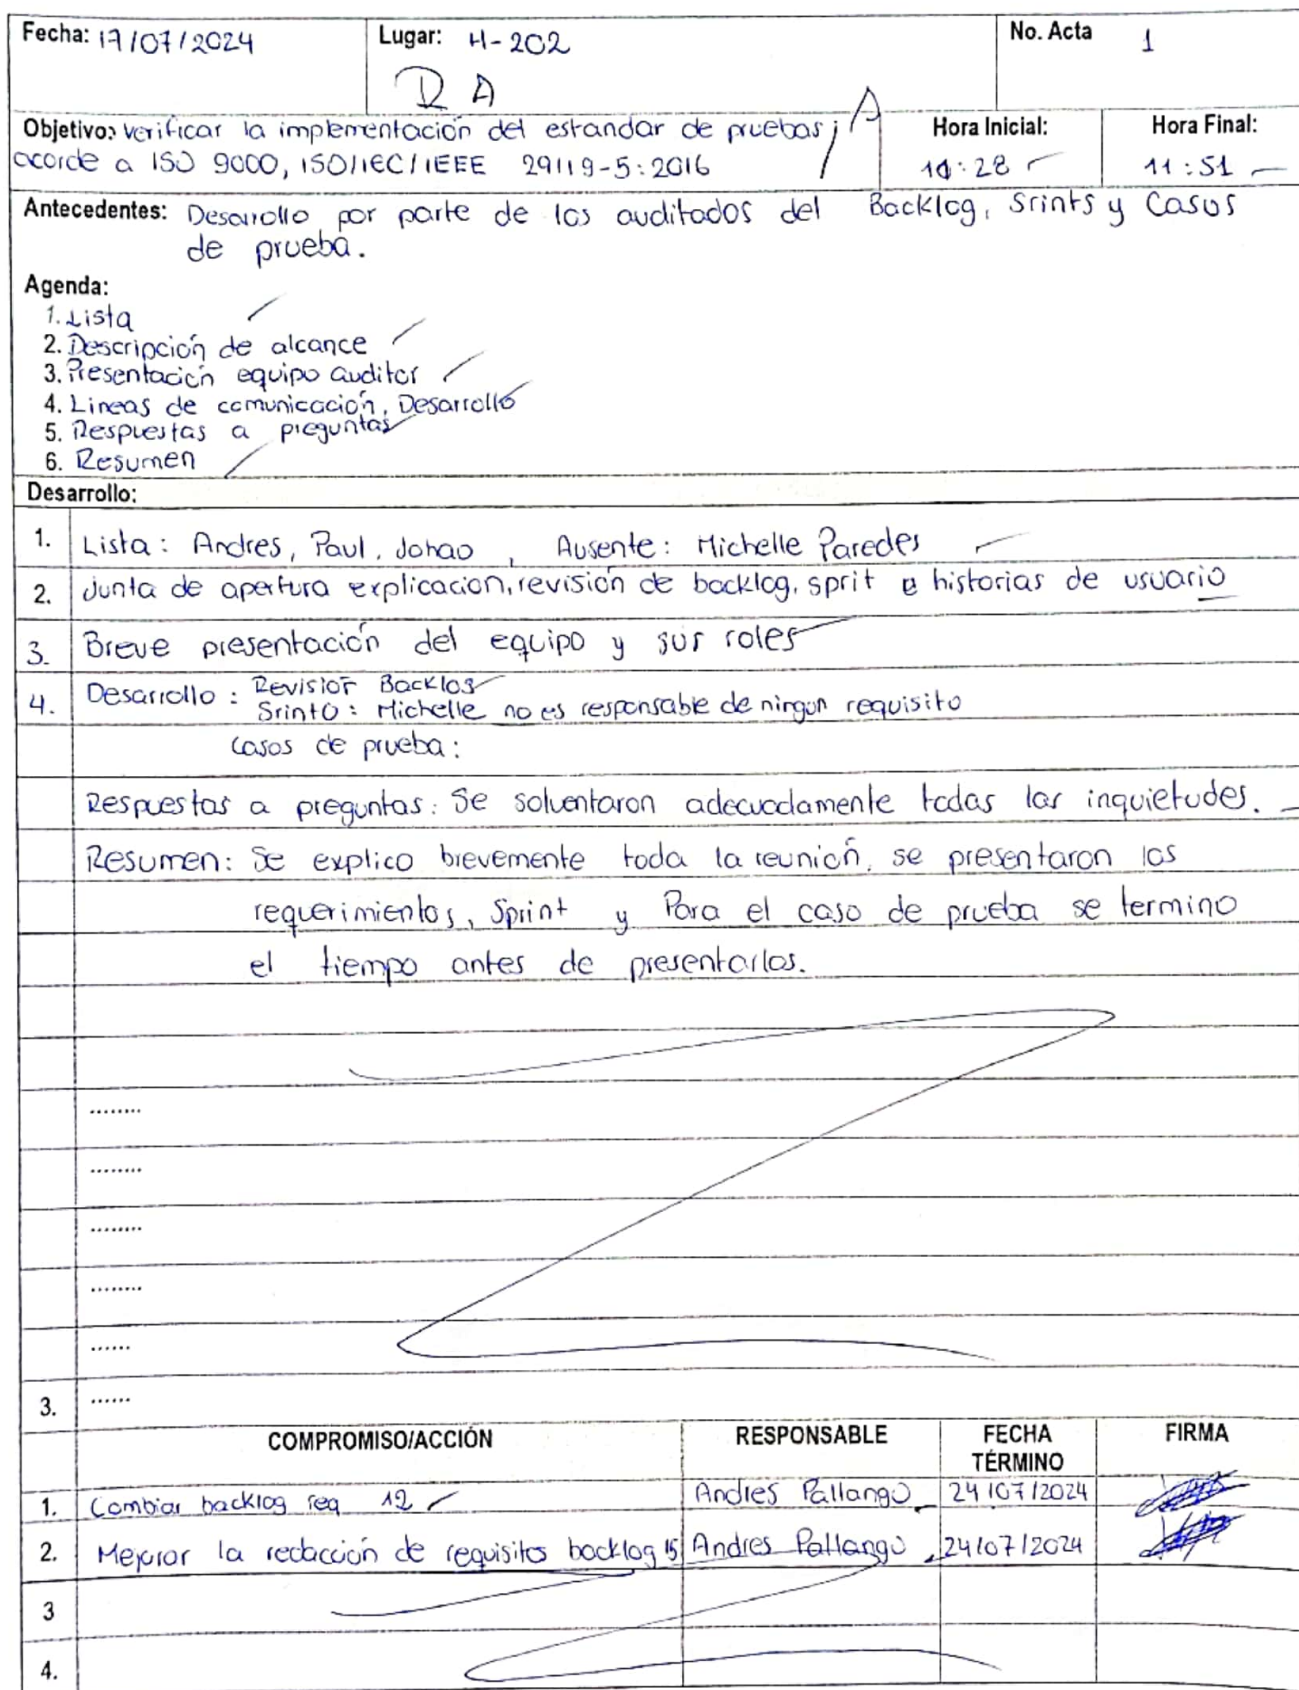 Fecha: 17/07/2024 Lugar: H-202 No. Acta 1
D A
Objetivo: Verificar la implementación del estandar de pruebas; A Hora Inicial: Hora Final:
acorde a ISO 9000, ISO/IEC/IEEE 29119-5:2016 10:28 11:51
Antecedentes: Desarrollo por parte de los auditados del Backlog, Srints y Casos
de prueba.
Agenda:
1. Lista
2. Descripción de alcance
3. Presentación equipo auditor
4. Lineas de comunicación, Desarrollo
5. Respuestas a preguntas
6. Resumen
Desarrollo:
1. Lista: Andres, Paul, Johao, Ausente: Michelle Paredes
2. Junta de apertura explicacion, revisión de backlog, sprit e historias de usuario
3. Breve presentación del equipo y sus roles
4. Desarrollo: Revisior Backlog
Srint0: Michelle no es responsable de ningun requisito
Casos de prueba:
Respuestas a preguntas: Se solventaron adecuadamente todas las inquietudes.
Resumen: Se explico brevemente toda la reunión, se presentaron los
requerimientos, Sprint y Para el caso de prueba se termino
el tiempo antes de presentarlos.
........
........
........
........
......
3. ......
COMPROMISO/ACCIÓN RESPONSABLE FECHA TÉRMINO FIRMA
1. Cambiar backlog req 12 Andres Pallango 24/07/2024
2. Mejorar la redacción de requisitos backlog 15 Andres Pallango 24/07/2024
3
4.